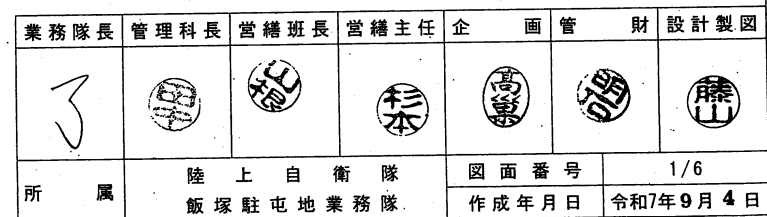 業務隊長 管理科長 営繕班長 営繕主任 企画 管財 設計製図
山根 杉本 高巣 藤山
所属 陸上自衛隊 飯塚駐屯地業務隊
図面番号 1/6
作成年月日 令和7年9月4日